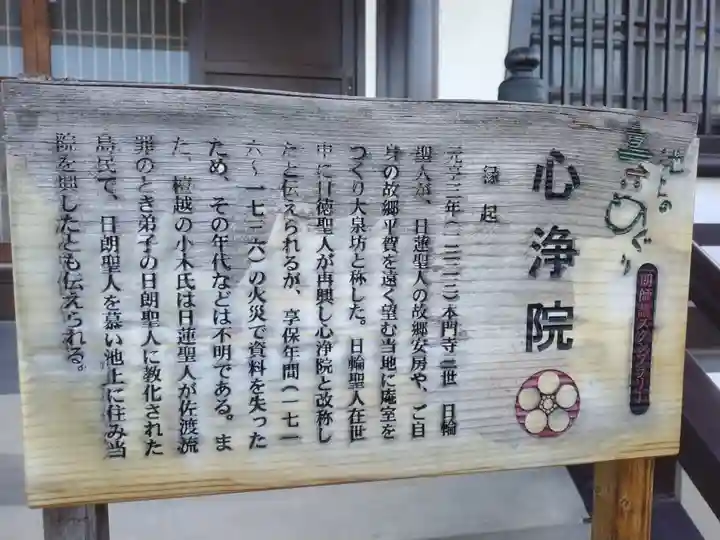 池上の
めぐり
朗師講スタンプラリー
心浄院
縁起
元亨三年(一三二三)本門寺三世 日輪
聖人が、日蓮聖人の故郷安房や、ご自
身の故郷平賀を遠く望む当地に庵室を
つくり大泉坊と称した。日輪聖人在世
中に日徳聖人が再興し心浄院と改称し
たと伝えられるが、享保年間(一七一
六~一七三六)の火災で資料を失った
ため、その年代などは不明である。ま
た、檀越の小木氏は日蓮聖人が佐渡流
罪のとき弟子の日朗聖人に教化された
島民で、日朗聖人を慕い池上に住み当
院を興したとも伝えられる。